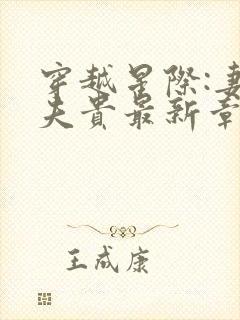 穿越星際:妻
夫貴最新章
王成康